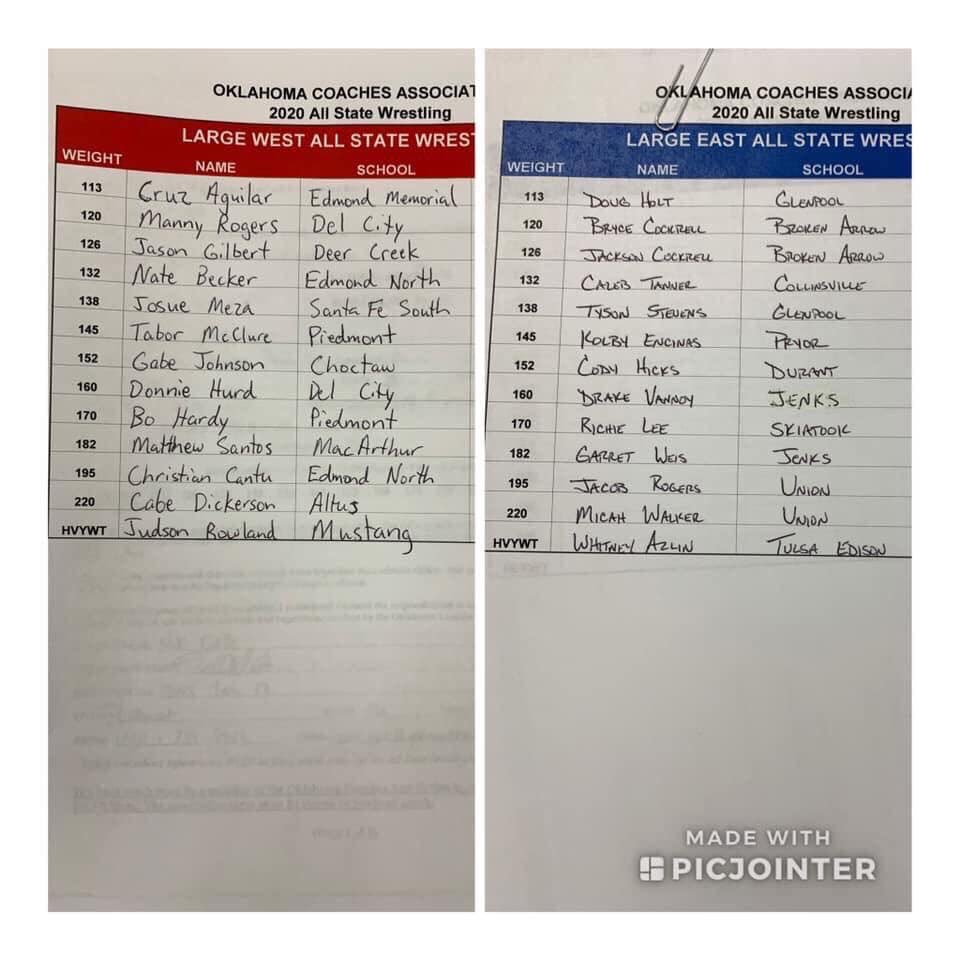 OKLAHOMA COACHES ASSOCIAT
2020 All State Wrestling
LARGE WEST ALL STATE WREST
WEIGHT NAME SCHOOL
113 Cruz Aguilar Edmond Memorial
120 Manny Rogers Del City
126 Jason Gilbert Deer Creek
132 Nate Becker Edmond North
138 Josue Meza Santa Fe South
145 Tabor McClure Piedmont
152 Gabe Johnson Choctaw
160 Donnie Hurd Del City
170 Bo Hardy Piedmont
182 Matthew Santos MacArthur
195 Christian Cantu Edmond North
220 Cabe Dickerson Altus
HVYWT Judson Rowland Mustang
OKLAHOMA COACHES ASSOCIA
2020 All State Wrestling
LARGE EAST ALL STATE WRES
WEIGHT NAME SCHOOL
113 DOUG HOLT GLENPOOL
120 BRYCE COCKRELL BROKEN ARROW
126 JACKSON COCKRELL BROKEN ARROW
132 CALEB TANNER COLLINSVILLE
138 TYSON STEVENS GLENPOOL
145 KOLBY ENCINAS PRYOR
152 CODY HICKS DURANT
160 DRAKE VANNOY JENKS
170 RICHIE LEE SKIATOOK
182 GARRET WEIS JENKS
195 JACOB ROGERS UNION
220 MICAH WALKER UNION
HVYWT WHITNEY AZLIN TULSA EDISON
MADE WITH
PICJOINTER